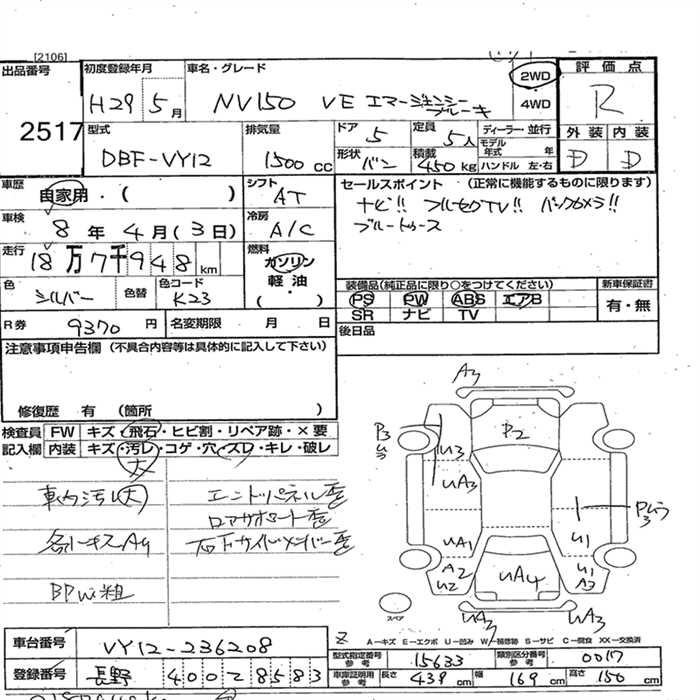 [2106]
出品番号 2517
初度登録年月 H29 5月
車名・グレード NV150 VE エマージェンシーブレーキ
2WD
4WD
評価点 R
外装 内装
D D
型式 DBF-VY12
排気量 1500cc
ドア 5
定員 5人
ディーラー・並行
モデル年式 年
形状 バン
積載 450kg
ハンドル 左・右
車歴 自家用・( )
シフト AT
セールスポイント (正常に機能するものに限ります)
ナビ!! フルセグTV!! バックカメラ!!
ブルートゥース
車検 8年 4月 (3日)
冷房 A/C
走行 18万7千948km
燃料 ガソリン
軽油
・( )
色 シルバー
色替
色コード K23
装備品(純正品に限り○をつけてください)
新車保証書
PS PW ABS エアB
有・無
SR ナビ TV
R券 9370円
名変期限 月 日
後日品
注意事項申告欄 (不具合内容等は具体的に記入して下さい)
修復歴 有 (箇所 )
検査員記入欄
FW キズ・飛石・ヒビ割・リペア跡・×要
内装 キズ・汚レ・コゲ・穴・スレ・キレ・破レ
大
車内汚レ大
各トキズA4
BPW粗
エンドパネル歪
ロアサポート歪
右下サイドメンバー歪
A3
P3
P2
U3
UA3
UA1
A2
U2
UA4
U1
U1
A3
UA3
UA3
スペア
A-キズ E-エクボ U-凹み W-補修跡 S-サビ C-腐食 XX-交換済
車台番号 VY12-236208
登録番号 長野 400 2 8583
型式指定番号 参考 15633
類別区分番号 参考 0017
車庫証明用 参考 長さ 439cm 幅 169cm 高さ 150cm